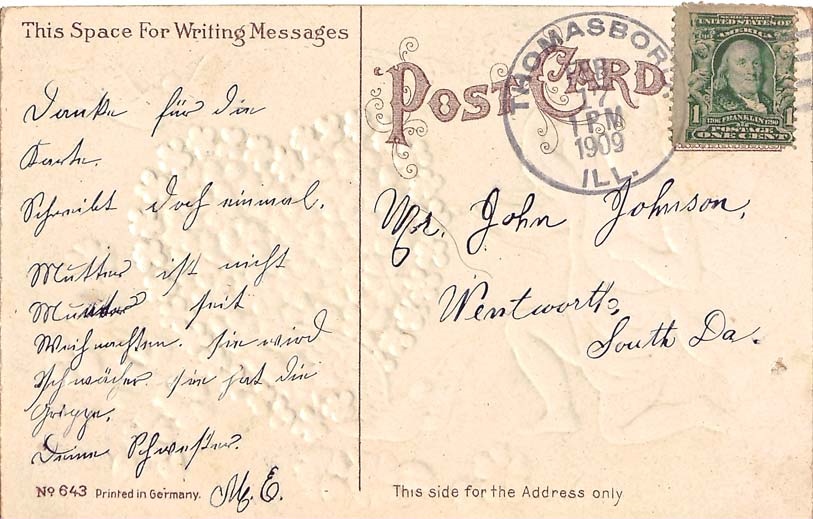 This Space For Writing Messages
Danke für die
Karte.
Schreibt doch einmal.
Mutter ist nicht
Munter seit
Weihnachten. sie wird
schwächer sie hat die
Grippe.
Deine Schwester.
M. E.
No 643 Printed in Germany.
POST CARD
THOMASBORO
FEB
17
1 PM
1909
ILL.
SERIES 1902
UNITED STATES OF
AMERICA
1 1706 FRANKLIN 1790 1
POSTAGE
ONE CENT
Mr. John Johnson,
Wentworth,
South Da.
This side for the Address only